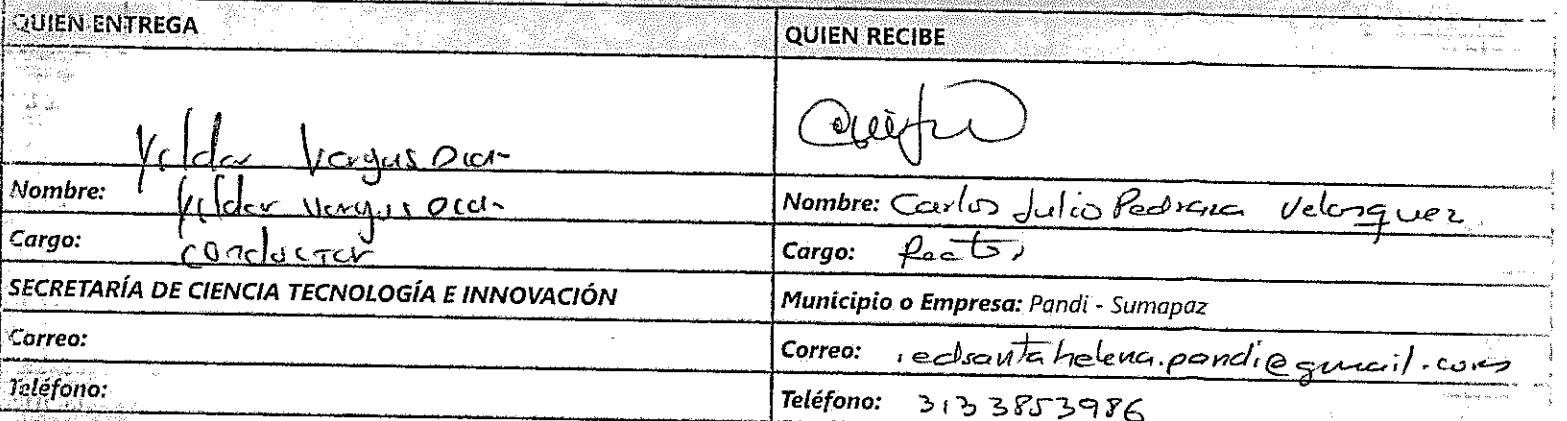 QUIEN ENTREGA
QUIEN RECIBE
Vargas
Nombre: Vargas
Nombre: Carlos Julio Pedraza Velasquez
Cargo: conductor
Cargo: Rector
SECRETARÍA DE CIENCIA TECNOLOGÍA E INNOVACIÓN
Municipio o Empresa: Pandi - Sumapaz
Correo:
Correo: iedsantahelena.pandi@gmail.com
Teléfono:
Teléfono: 3133853986